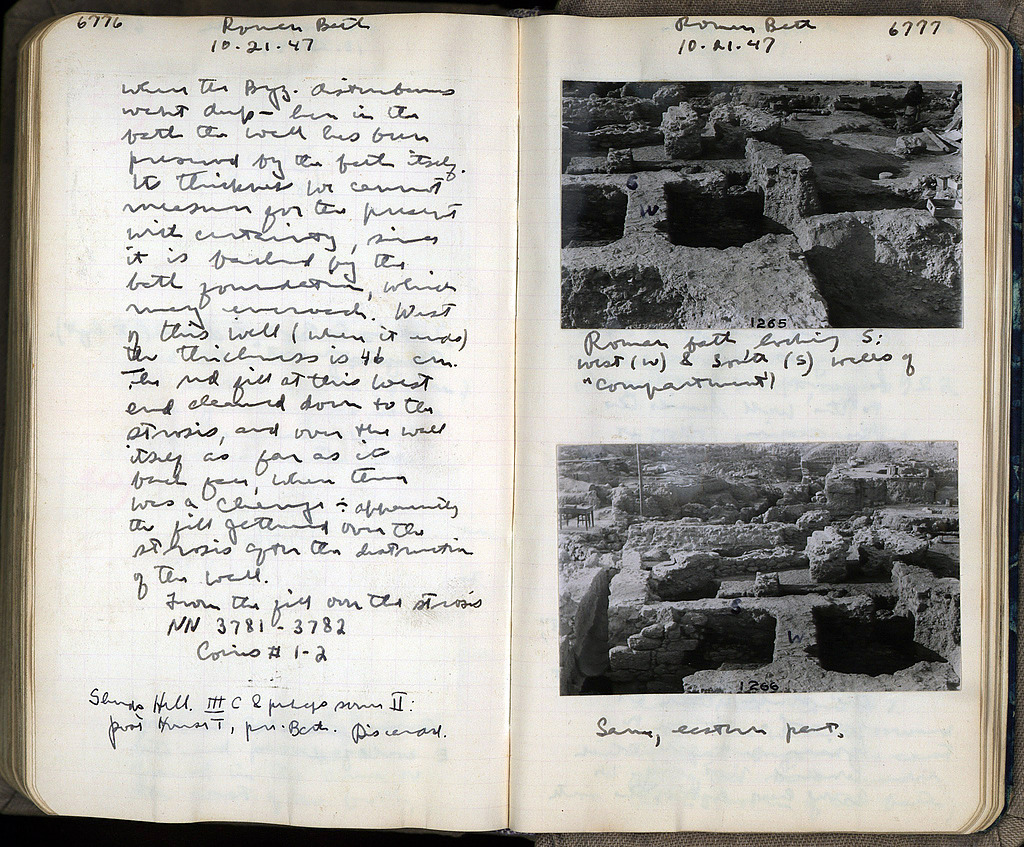 6776
Roman Bath
10.21.47
when the Byz. disturbances
went deep - here in the
bath the wall has been
preserved by the bath itself.
Its thickness we cannot
measure for the present
with certainty, since
it is backed by the
bath foundation, which
may encroach. West
of this wall (where it ends)
the thickness is 46 cm.
The red fill at this west
end cleaned down to the
strosis, and over the wall
itself as far as it
was a change : apparently
the fill gathered over the
strosis after the destruction
of the wall.
From the fill over the strosis
NN 3781 - 3782
Coins # 1-2
Sherds Hell. III C & perhaps some II:
post House I, pre-Bath. Discard.
Roman Bath
10.21.47
6777
S
W
1265
Roman bath looking S:
West (W) & South (S) walls of
"compartment"
S
W
1266
Same, eastern part.